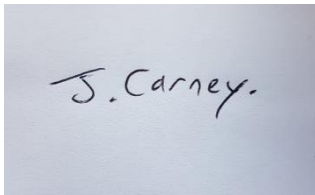 J. Carney.